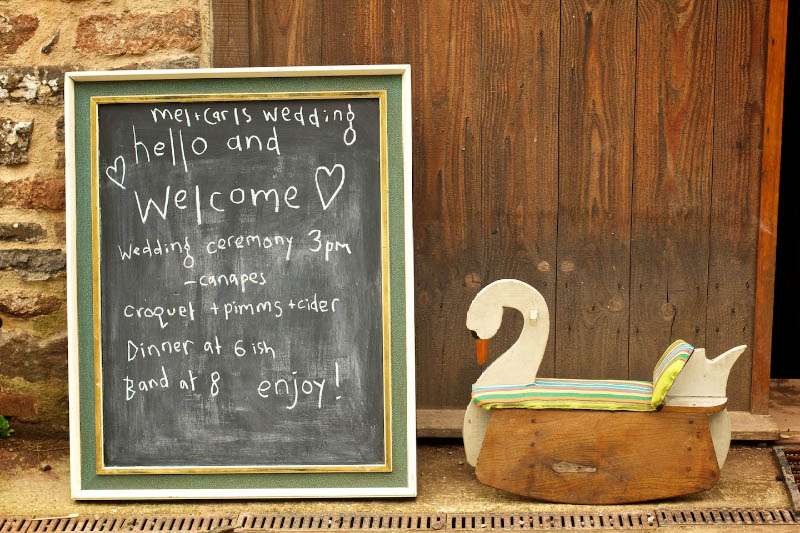 mel+carls wedding
hello and
Welcome
Wedding ceremony 3pm
-canapes
croquet +pimms+cider
Dinner at 6ish
Band at 8 enjoy!